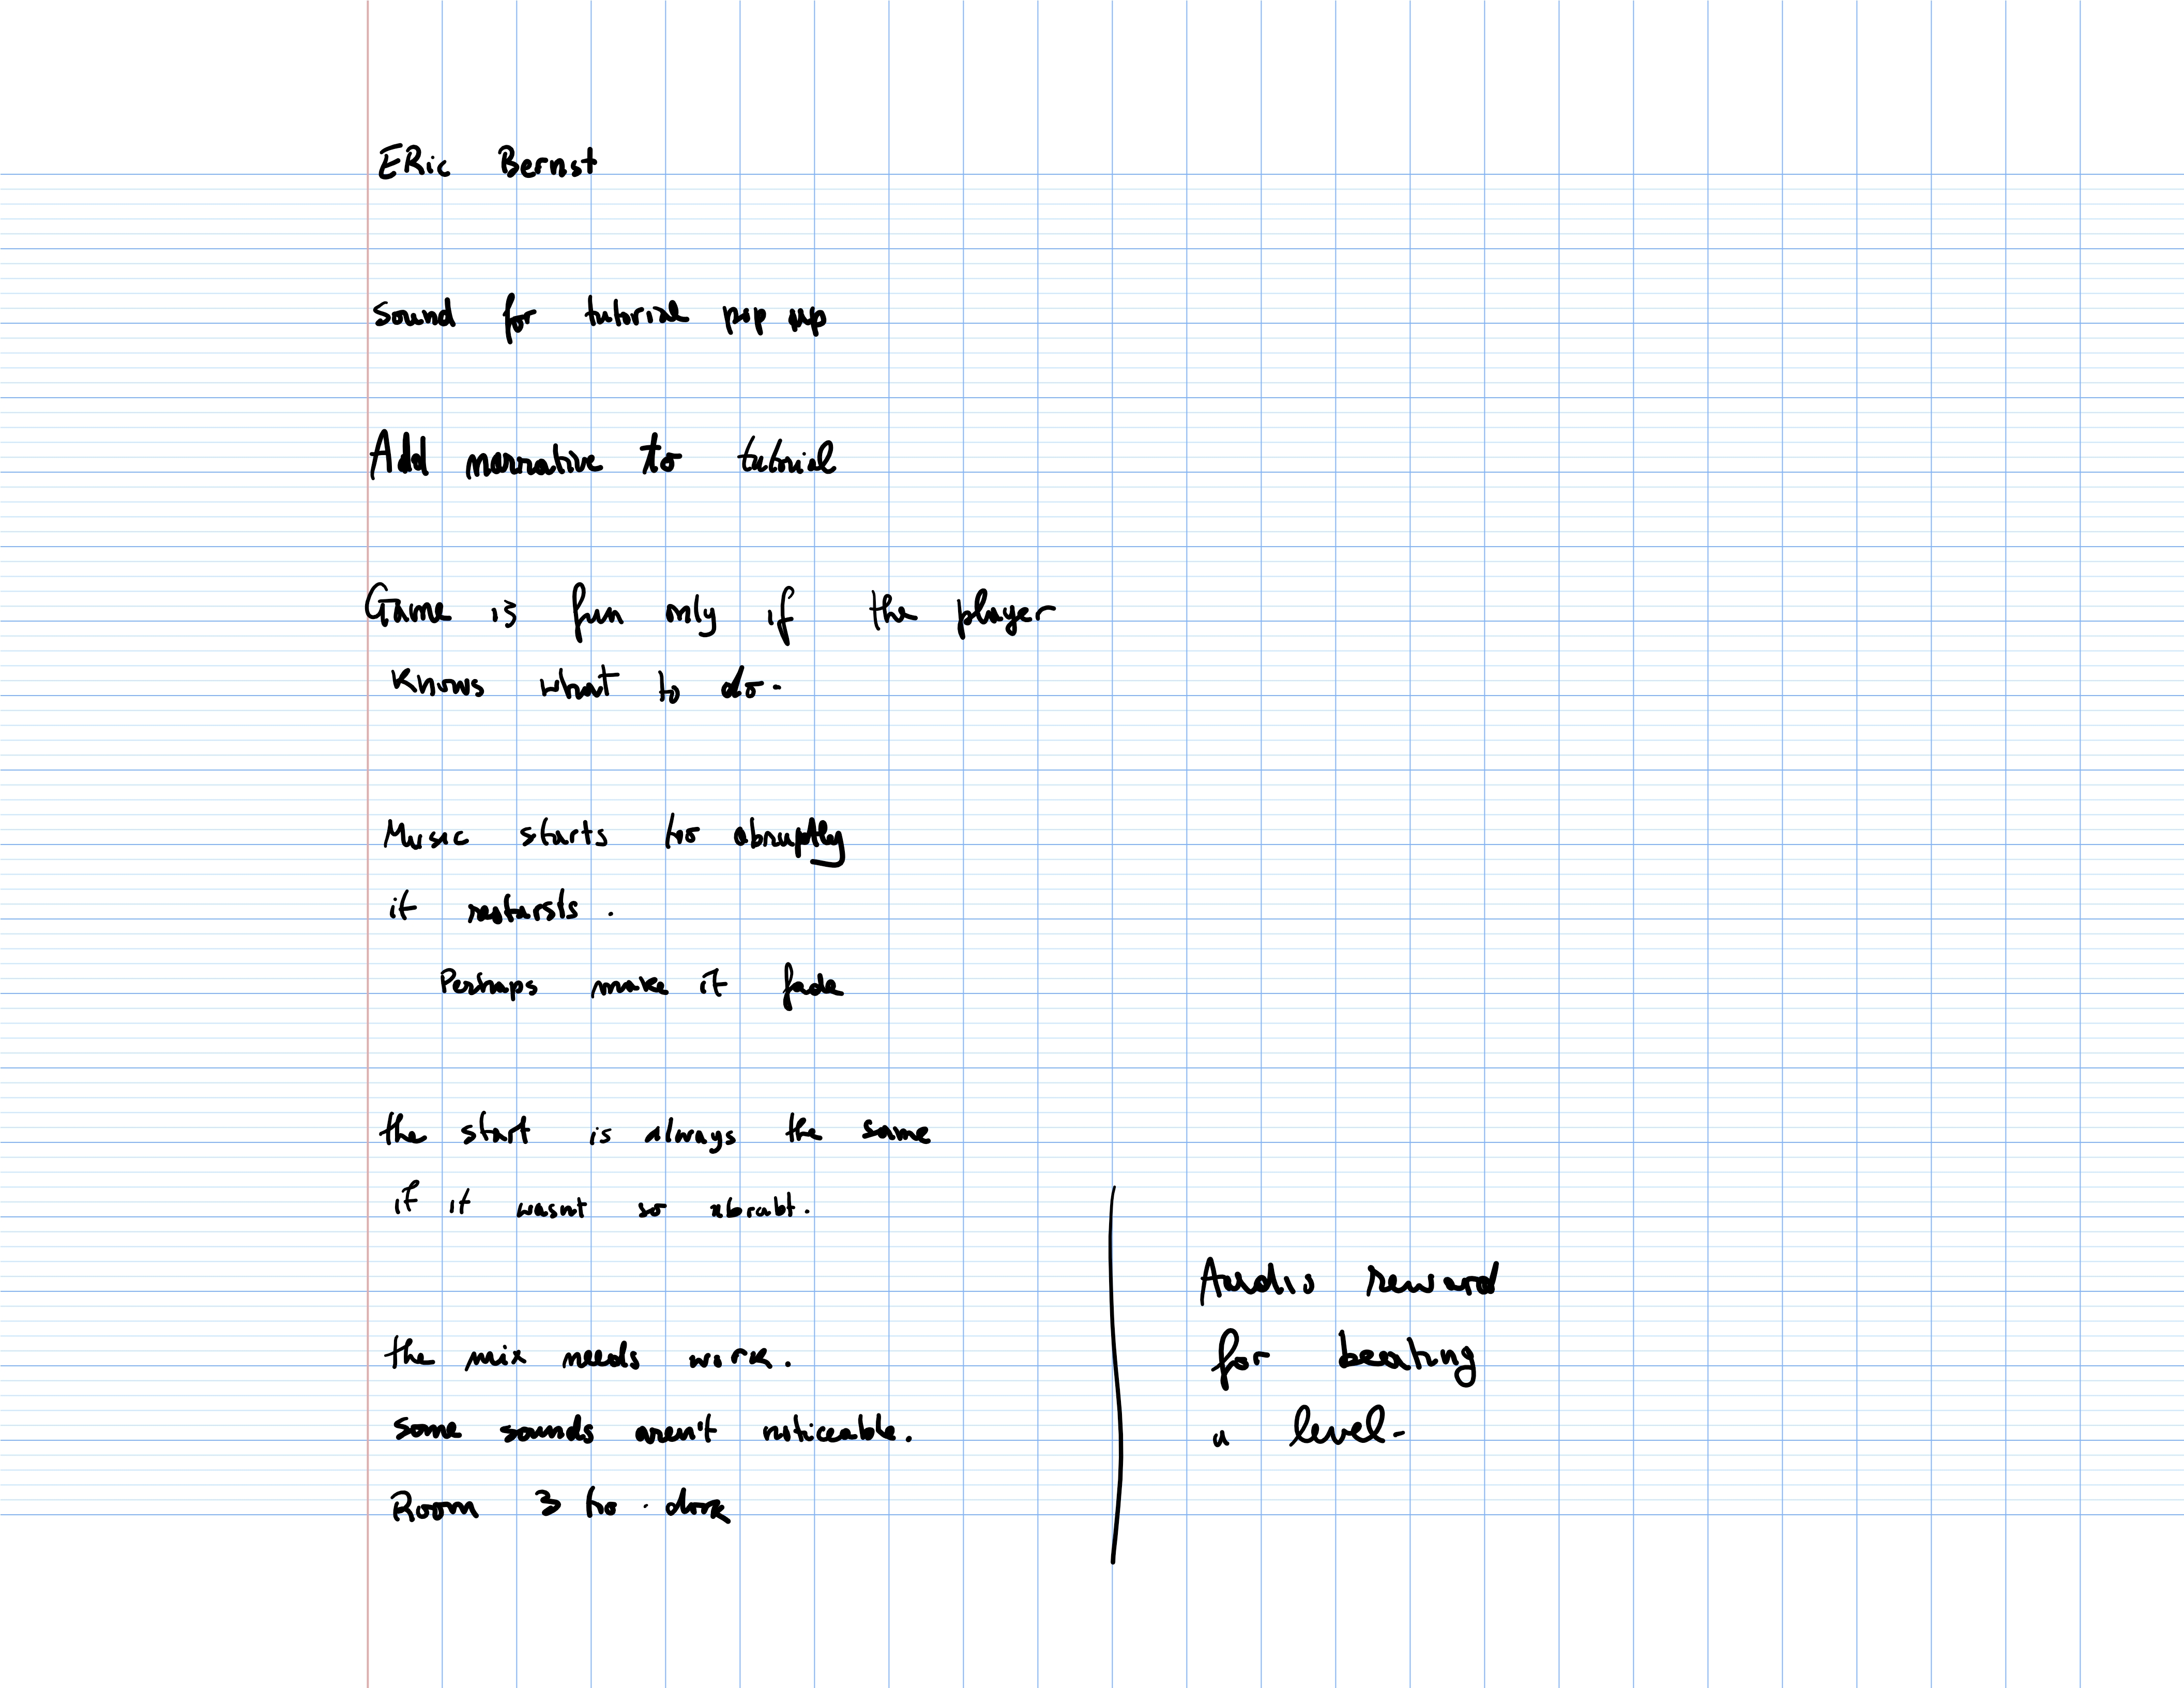 ERic Bernst
Sound for tutorial pop up
Add narrative to tutorial
Game is fun only if the player
knows what to do.
Music starts to abruptly
it restarsts.
Perhaps make it fade
the start is always the same
if it wasnt so abrubt.
the mix needs work.
some sounds aren't noticeable.
Room 3 to. dark
Audio reward
for beating
a level.